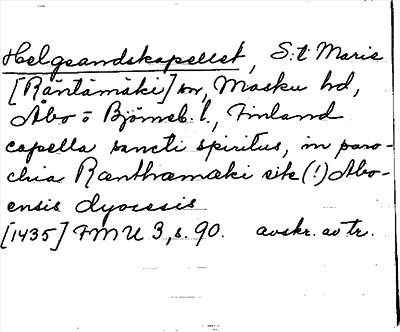 Helgeandskapellet, S:t Marie
[Räntämäki] sn, Masku hd,
Åbo o Björneb. l., Finland
capella sancti spiritus, in paro-
chia Ranthamaki sitk (!) Abo-
ensis dyocesis
[1435] FMU 3, s. 90. avskr. av tr.